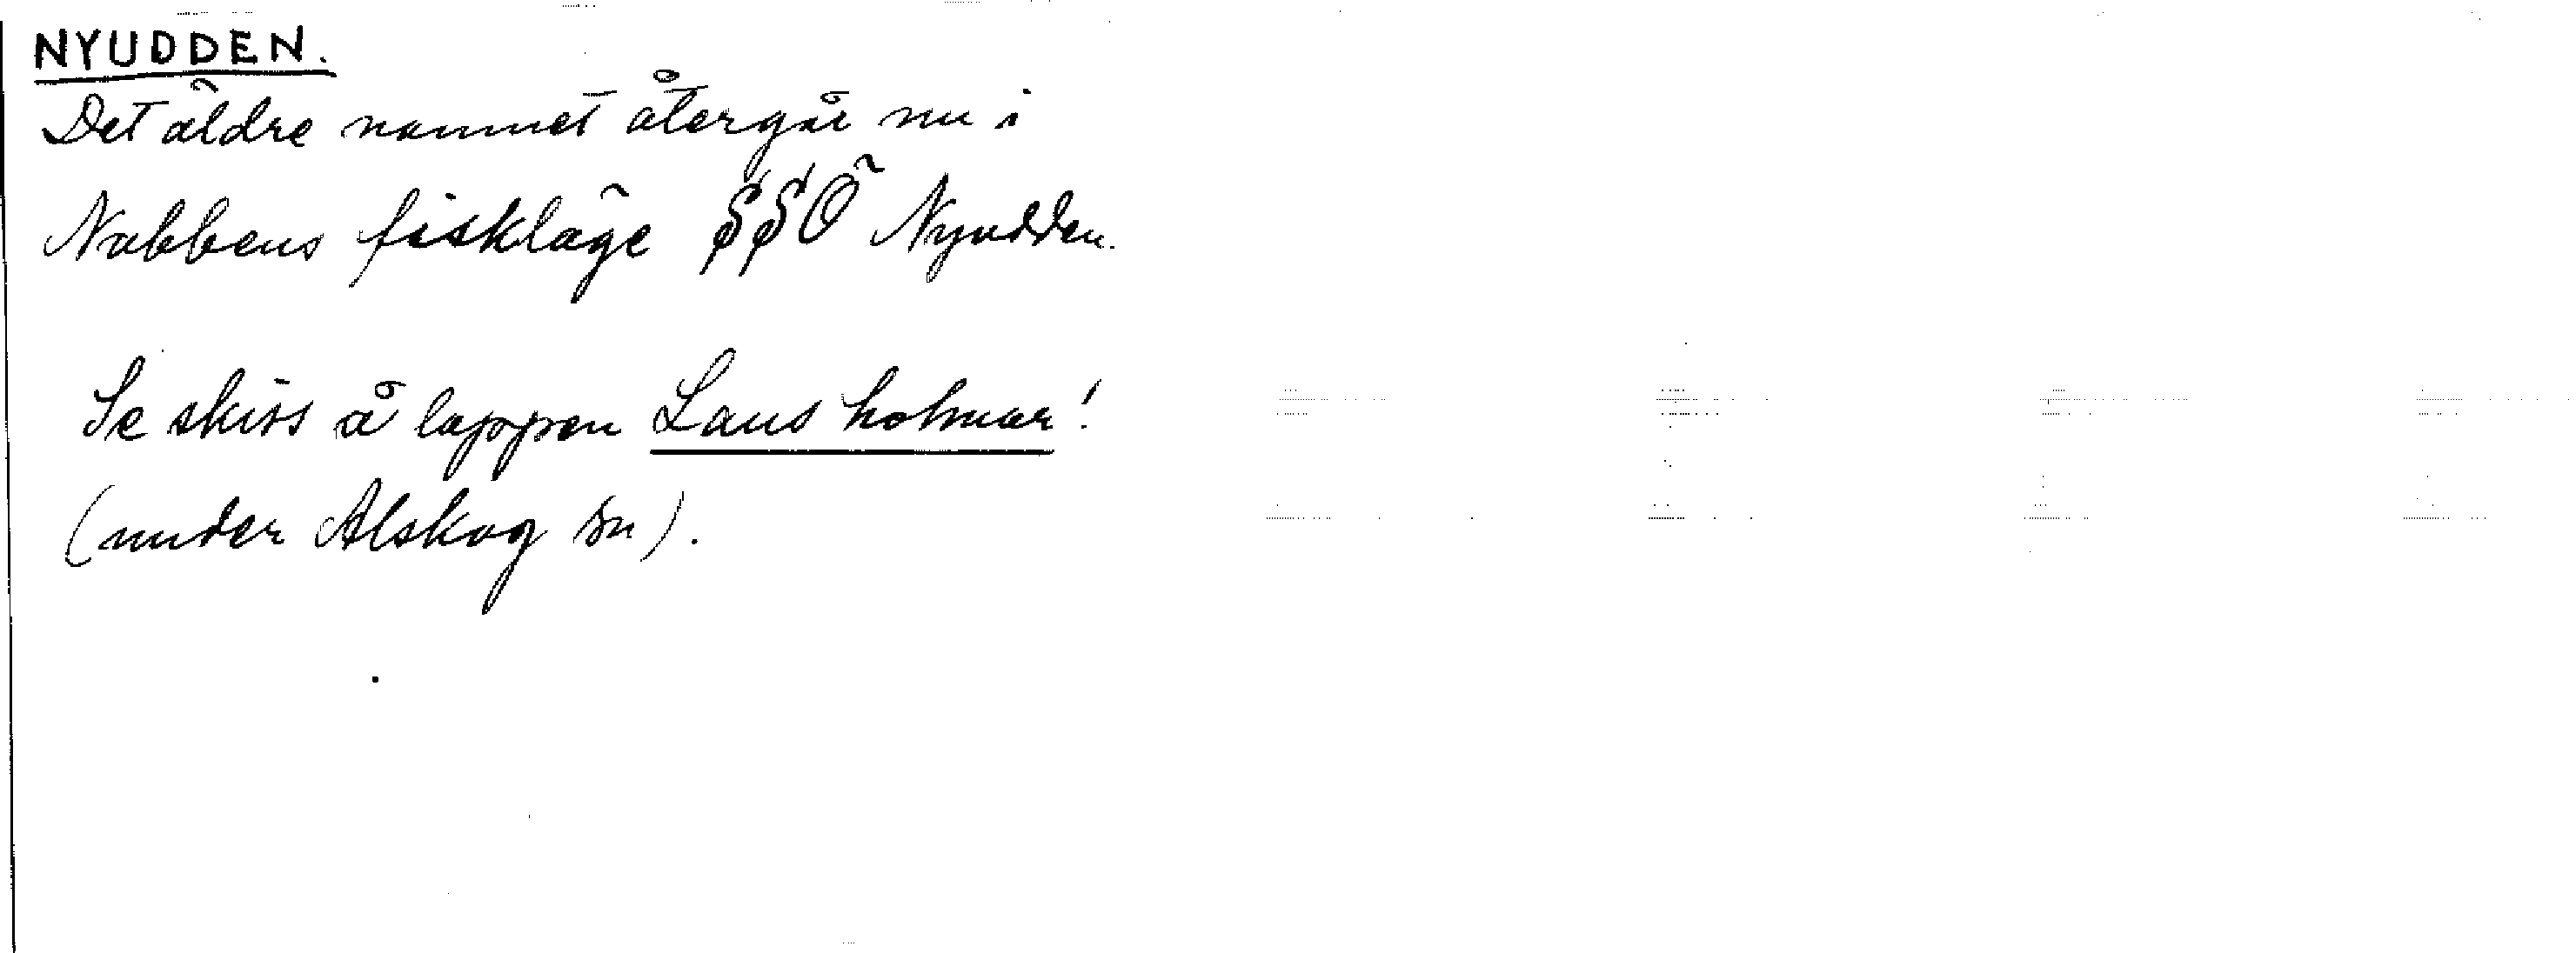 NYUDDEN.
Det äldre namnet återgår nu i
Nabbens fiskläge SSÖ Nyudden.
Se skiss å lappen Laus holmar!
(under Alskog sn).